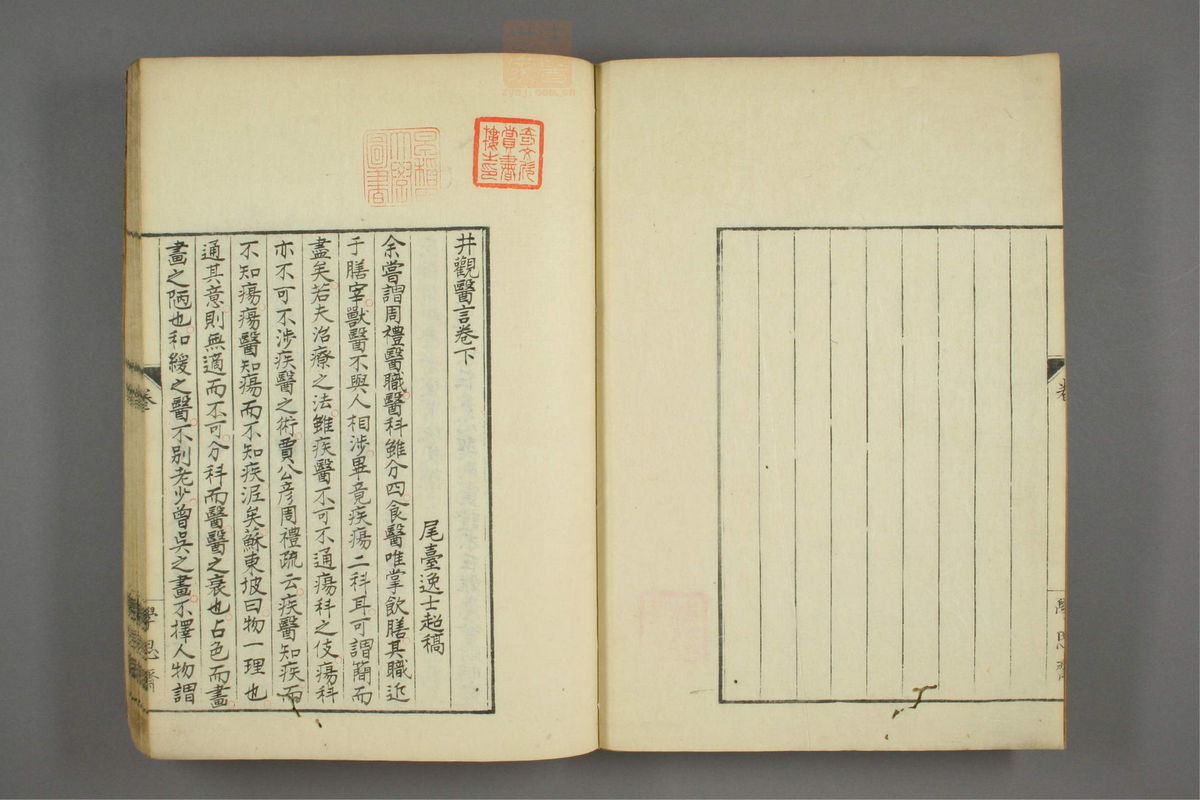 井觀醫言卷下
尾臺逸士超稿
余嘗謂周禮醫職醫科雖分四食醫唯掌飲膳其職近
于膳宰獸醫不與人相涉畢竟疾瘍二科耳可謂簡而
盡矣若夫治療之法雖疾醫不可不通瘍科之伎瘍科
亦不可不涉疾醫之術賈公彦周禮疏云疾醫知疾而
不知瘍瘍醫知瘍而不知疾泥矣蘇東坡曰物一理也
通其意則無適而不可分科而醫醫之衰也占色而畫
畫之陋也和緩之醫不別老少曾吳之畫不擇人物謂
學思齋
奇文欣賞書樓之印
圖書
zysj.com.cn